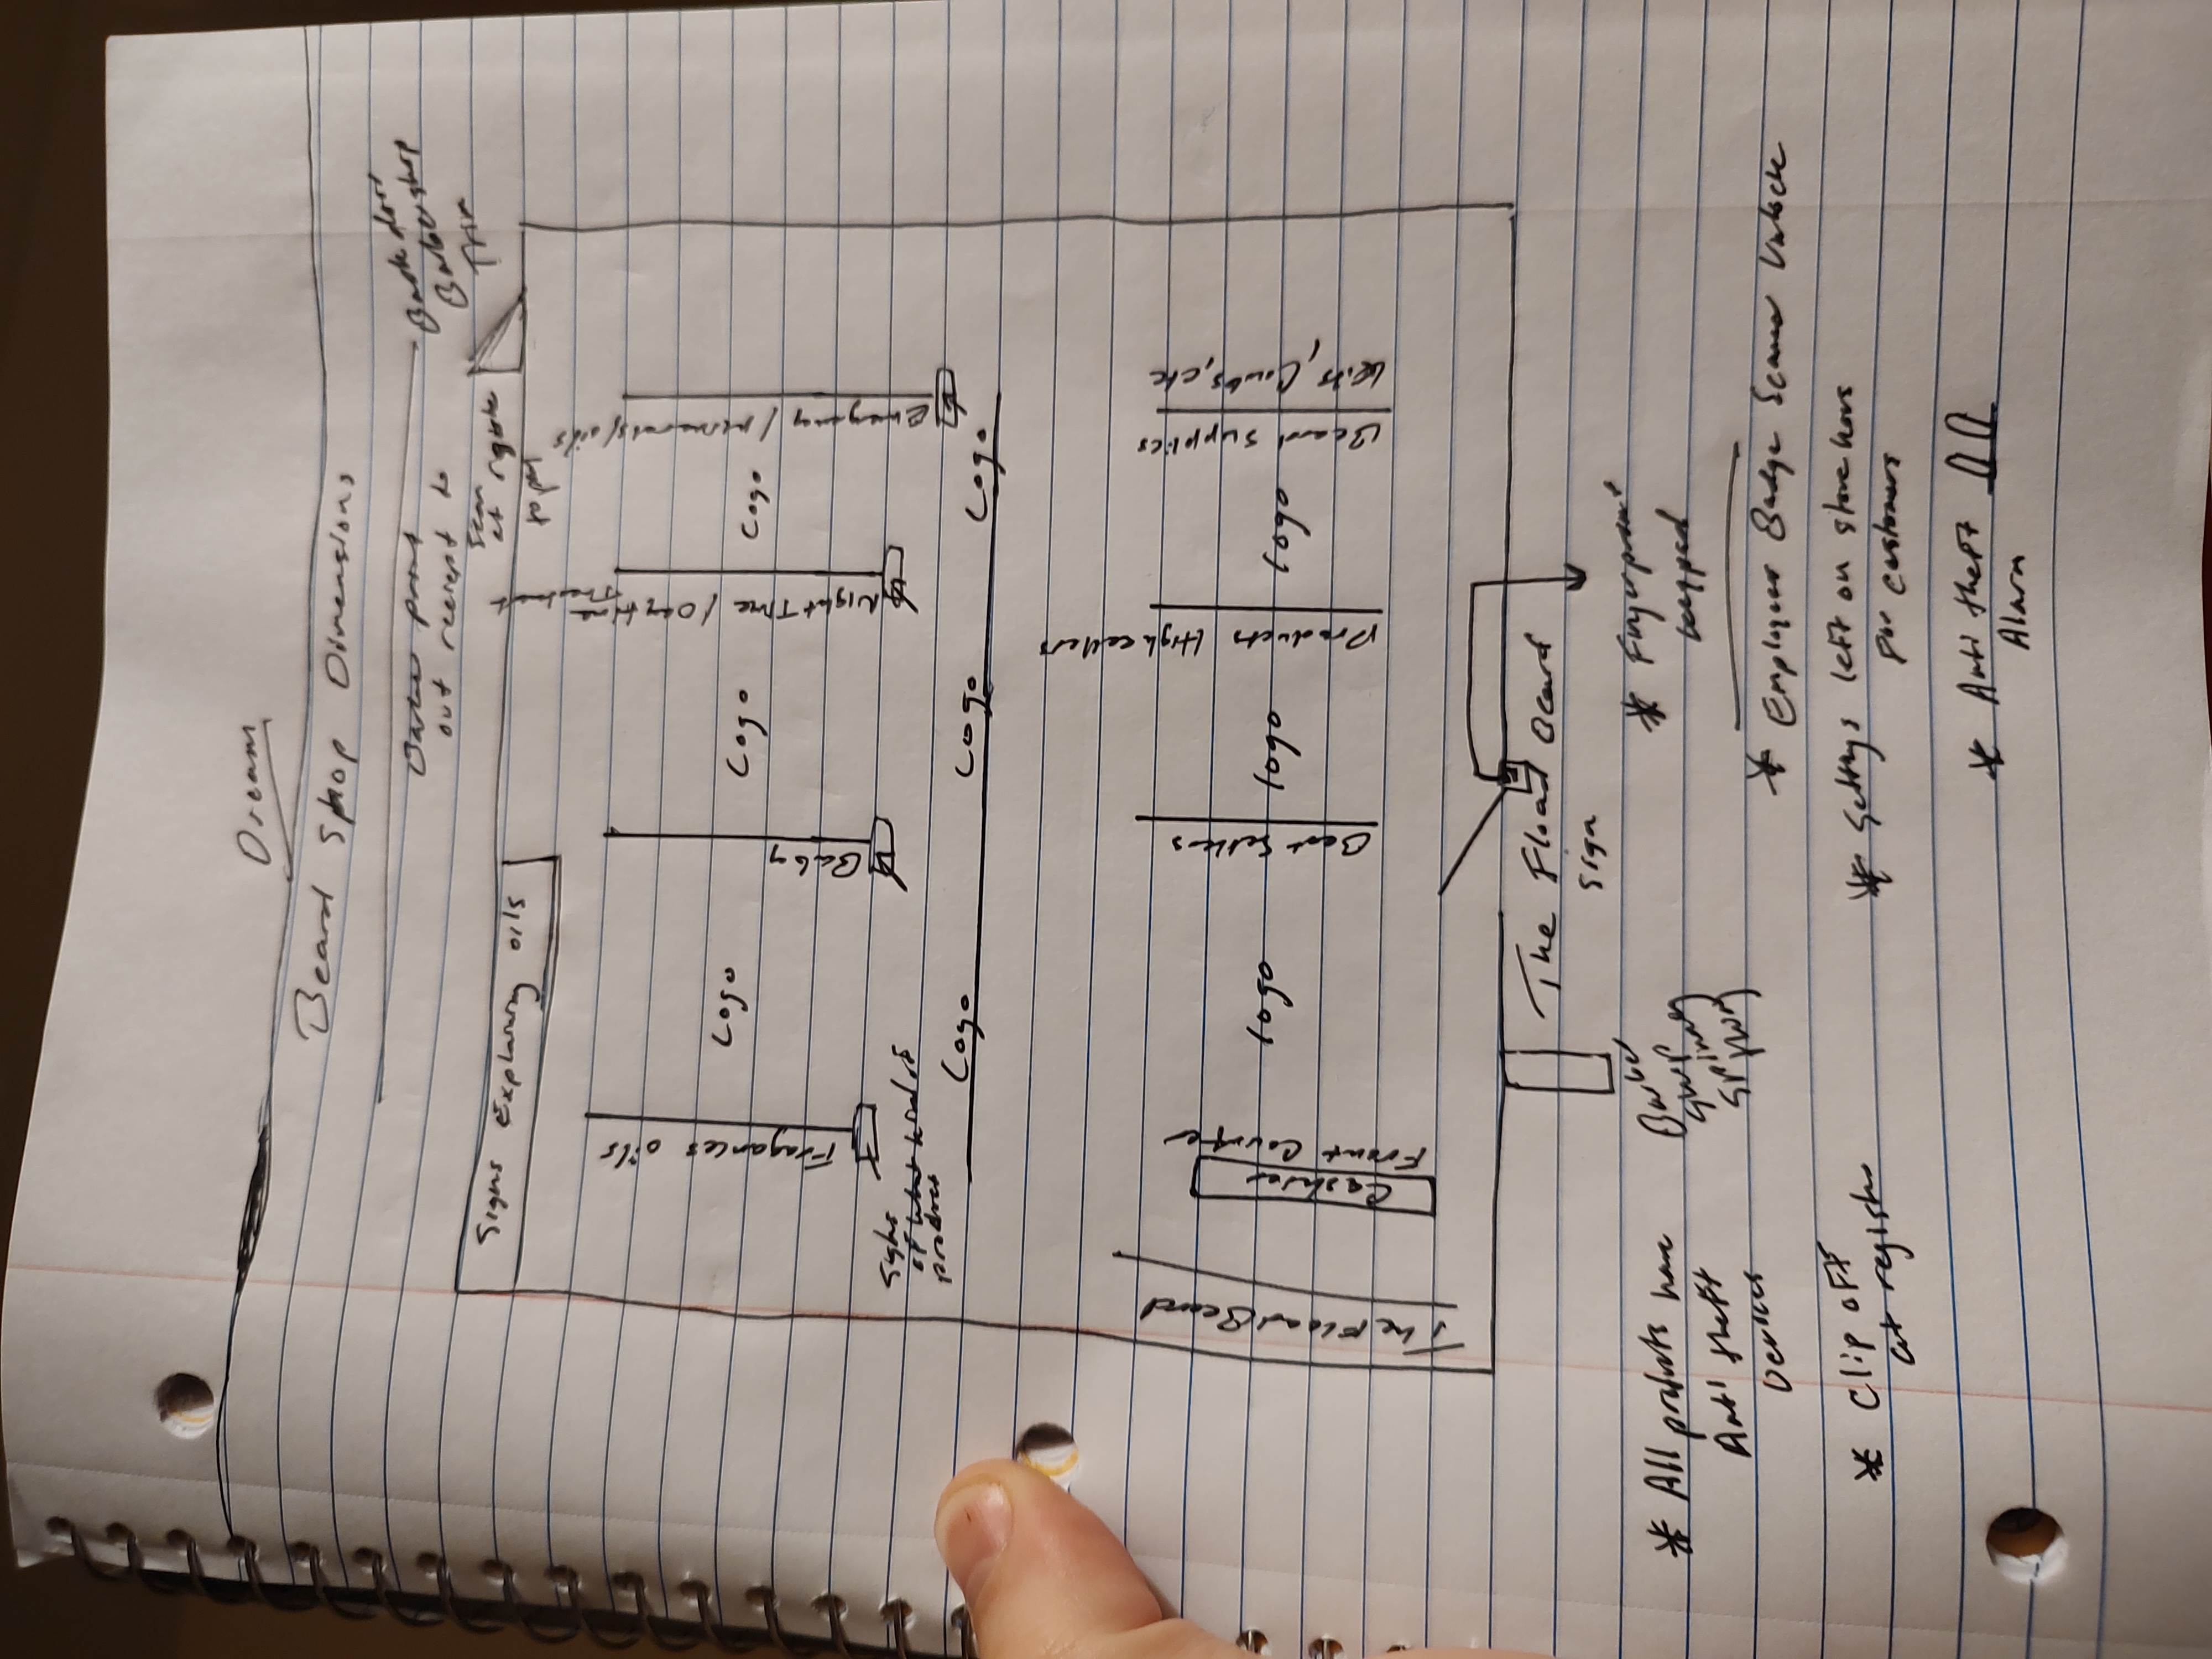 Dream
Beard Shop Dimensions
Back door
Barbershop
Trim
Barber print
out reciept to
scan
at register
to pay
Signs Explaining oils
Fragances oils
Logo
Baby
Logo
Night Time / Day time
Treatment
Logo
Emergency / minerals/oils
Signs
of what kind of
product
Logo
Logo
Logo
The Fload Beard
Cashier
Front Counter
logo
Best Sellers
logo
Products High cellers
logo
Beard supplies
Kits, Combs, etc
The Fload Beard
sign
Barber
Shop
Spinning
thing
* All products have
Anti theft
Devices
* Clip off
at register
* Fingerprint
keypad
* Employees Badge Scanner Unlock
* Settings left on store hours
for customers
* Anti theft
Alarm